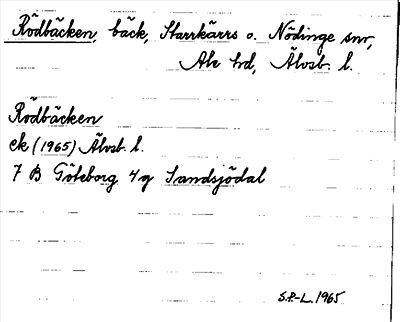 Rödbäcken, bäck, Starrkärrs o. Nödinge snr,
Ale hd, Älvsb. l.
Rödbäcken
ek (1965) Älvsb. l.
7 B Göteborg 4 g Sandsjödal
S.P.-L. 1965